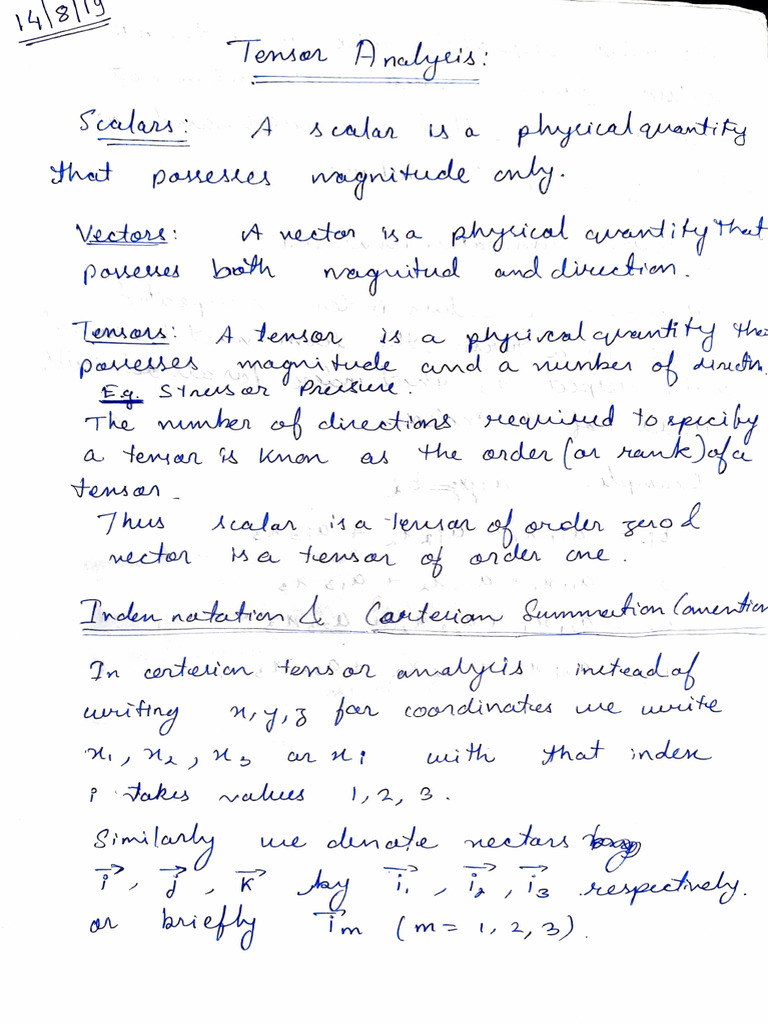 14/8/19
Tensor Analysis:
Scalars: A scalar is a physical quantity
that possesses magnitude only.
Vectors: A vector is a physical quantity that
possesses both magnitud and direction.
Tensors: A tensor is a physical quantity tha
possesses magnitude and a number of directn.
E.g. Stress or Pressure.
The number of directions required to specify
a tensor is knon as the order (or rank) of a
tensor.
Thus scalar is a tensor of order zero &
vector is a tensor of order one.
Index notation & Cartesian Summation Convention
In cartesian tensor analysis instead of
writing x, y, z for coordinates we write
x₁, x₂, x₃ or xi with that index
i takes values 1, 2, 3.
Similarly we denote vectors
i⃗, j⃗, k⃗ by i⃗₁, i⃗₂, i⃗₃ respectively.
or briefly i⃗m (m = 1, 2, 3).